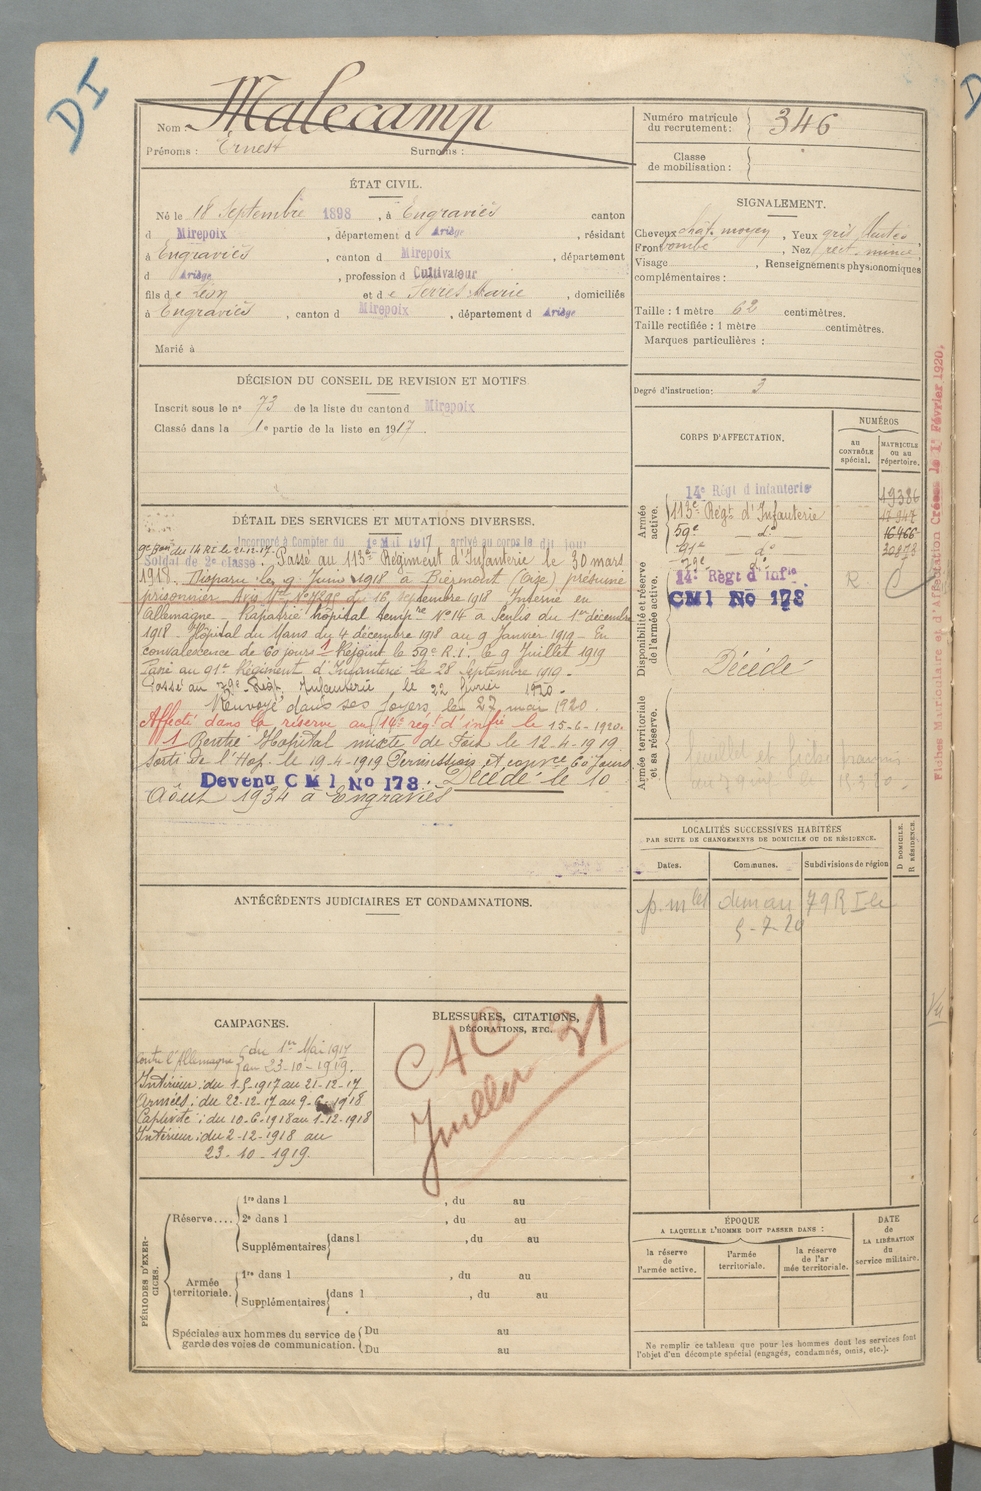 DI
Nom Malecamp
Prénoms : Ernest Surnoms :
Numéro matricule du recrutement : 346
Classe de mobilisation :
ÉTAT CIVIL.
Né le 18 Septembre 1898, à Engraviès canton
d Mirepoix, département d Ariège, résidant
à Engraviès, canton d Mirepoix, département
d Ariège, profession d Cultivateur
fils de Léon et de Serres Marie, domiciliés
à Engraviès, canton d Mirepoix, département d Ariège
Marié à
SIGNALEMENT.
Cheveux chât. moyen, Yeux gris
Front bombé, Nez rect. mince
Visage , Renseignements physionomiques
complémentaires :
Taille : 1 mètre 62 centimètres.
Taille rectifiée : 1 mètre centimètres.
Marques particulières :
Degré d'instruction : 3
DÉCISION DU CONSEIL DE REVISION ET MOTIFS
Inscrit sous le nº 73 de la liste du canton d Mirepoix
Classé dans la 1e partie de la liste en 1917.
DÉTAIL DES SERVICES ET MUTATIONS DIVERSES.
Incorporé à Compter du 1e Mai 1917 arrivé au corps le dit jour
Soldat de 2e classe. Passé au 113e Régiment d'Infanterie le 30 mars
1918. Disparu le 9 Juin 1918 à Biermont (Oise) présumé
prisonnier. Avis du 16 septembre 1918. Interné en
Allemagne - Rapatrié hôpital temp.re Nº 14 à Senlis du 1er décembre
1918 - Hôpital du Mans du 4 décembre 1918 au 9 Janvier 1919 - En
convalescence de 60 jours 1 Rejoint le 59e R.I. le 9 Juillet 1919
Passé au 91e Régiment d'Infanterie le 28 Septembre 1919 -
Passé au 79e Régt Infanterie le 22 février 1920 -
Renvoyé dans ses foyers le 27 mai 1920.
Affecté dans la réserve au 14e rég.t d'inf.ie le 15-6-1920.
1 Rentré Hopital mixte de Foix le 12-4-1919
Sorti de l'Hop. le 19-4-1919 Permission et conv.ce 60 jours
Devenu CM1 No 178. Décédé le 10
Août 1934 à Engraviès
CORPS D'AFFECTATION.
NUMÉROS
au CONTRÔLE spécial.
MATRICULE ou au répertoire.
Armée active.
14e Régt d Infanterie 19386
113e Régt d'Infanterie
59e - dº 16466
91e - dº
79e dº
Disponibilité et réserve de l'armée active.
14e Régt d'Inf.ie R
CM1 No 178
Décédé
Armée territoriale et sa réserve.
LOCALITÉS SUCCESSIVES HABITÉES
PAR SUITE DE CHANGEMENTS DE DOMICILE OU DE RÉSIDENCE.
Dates. Communes. Subdivisions de région
D DOMICILE. R RÉSIDENCE.
79 R I
5-7-20
ANTÉCÉDENTS JUDICIAIRES ET CONDAMNATIONS.
CAMPAGNES.
Contre l'Allemagne du 1er Mai 1917
au 23-10-1919.
Intérieur : du 1-5-1917 au 21-12-17
Armées : du 22-12-17 au 9-6-1918
Captivité : du 10-6-1918 au 1-12-1918
Intérieur : du 2-12-1918 au
23-10-1919.
BLESSURES, CITATIONS,
DÉCORATIONS, ETC.
CAC
PÉRIODES D'EXERCICES.
Réserve....
1re dans l , du au
2e dans l , du au
Supplémentaires dans l , du au
Armée territoriale.
1re dans l , du au
Supplémentaires dans l , du au
Spéciales aux hommes du service de garde des voies de communication.
Du au
Du au
ÉPOQUE
A LAQUELLE L'HOMME DOIT PASSER DANS :
la réserve de l'armée active.
l'armée territoriale.
la réserve de l'armée territoriale.
DATE de LA LIBÉRATION du service militaire.
Ne remplir ce tableau que pour les hommes dont les services font
l'objet d'un décompte spécial (engagés, condamnés, omis, etc.).
Fiches Matriculaire et d'Affectation Créées le 1r Février 1920.